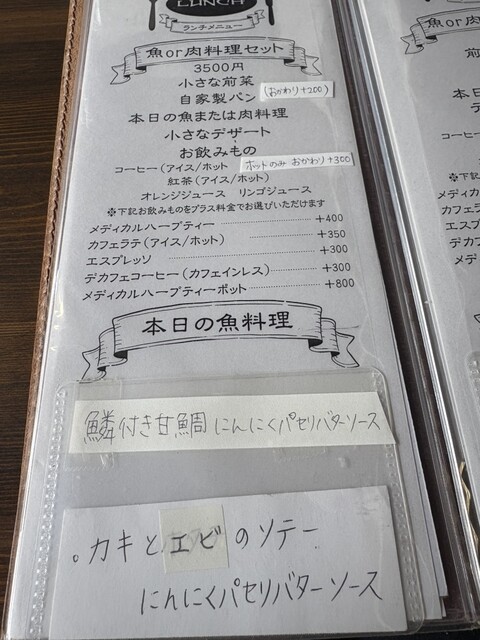 LUNCH
ランチメニュー
魚or肉料理セット
3500円
小さな前菜
自家製パン (おかわり+200)
本日の魚または肉料理
小さなデザート
お飲みもの
コーヒー(アイス/ホット ホットのみ おかわり+300
紅茶(アイス/ホット)
オレンジジュース リンゴジュース
※下記お飲みものをプラス料金でお選びいただけます
メディカルハーブティー +400
カフェラテ(アイス/ホット) +350
エスプレッソ +300
デカフェコーヒー(カフェインレス) +300
メディカルハーブティーポット +800
本日の魚料理
鱗付き甘鯛 にんにくパセリバターソース
。カキとエビのソテー
にんにくパセリバターソース
魚or肉
前
本日
デ
コーヒー
※下記
メディ
カフェ
エスプ
デカフ
メデ